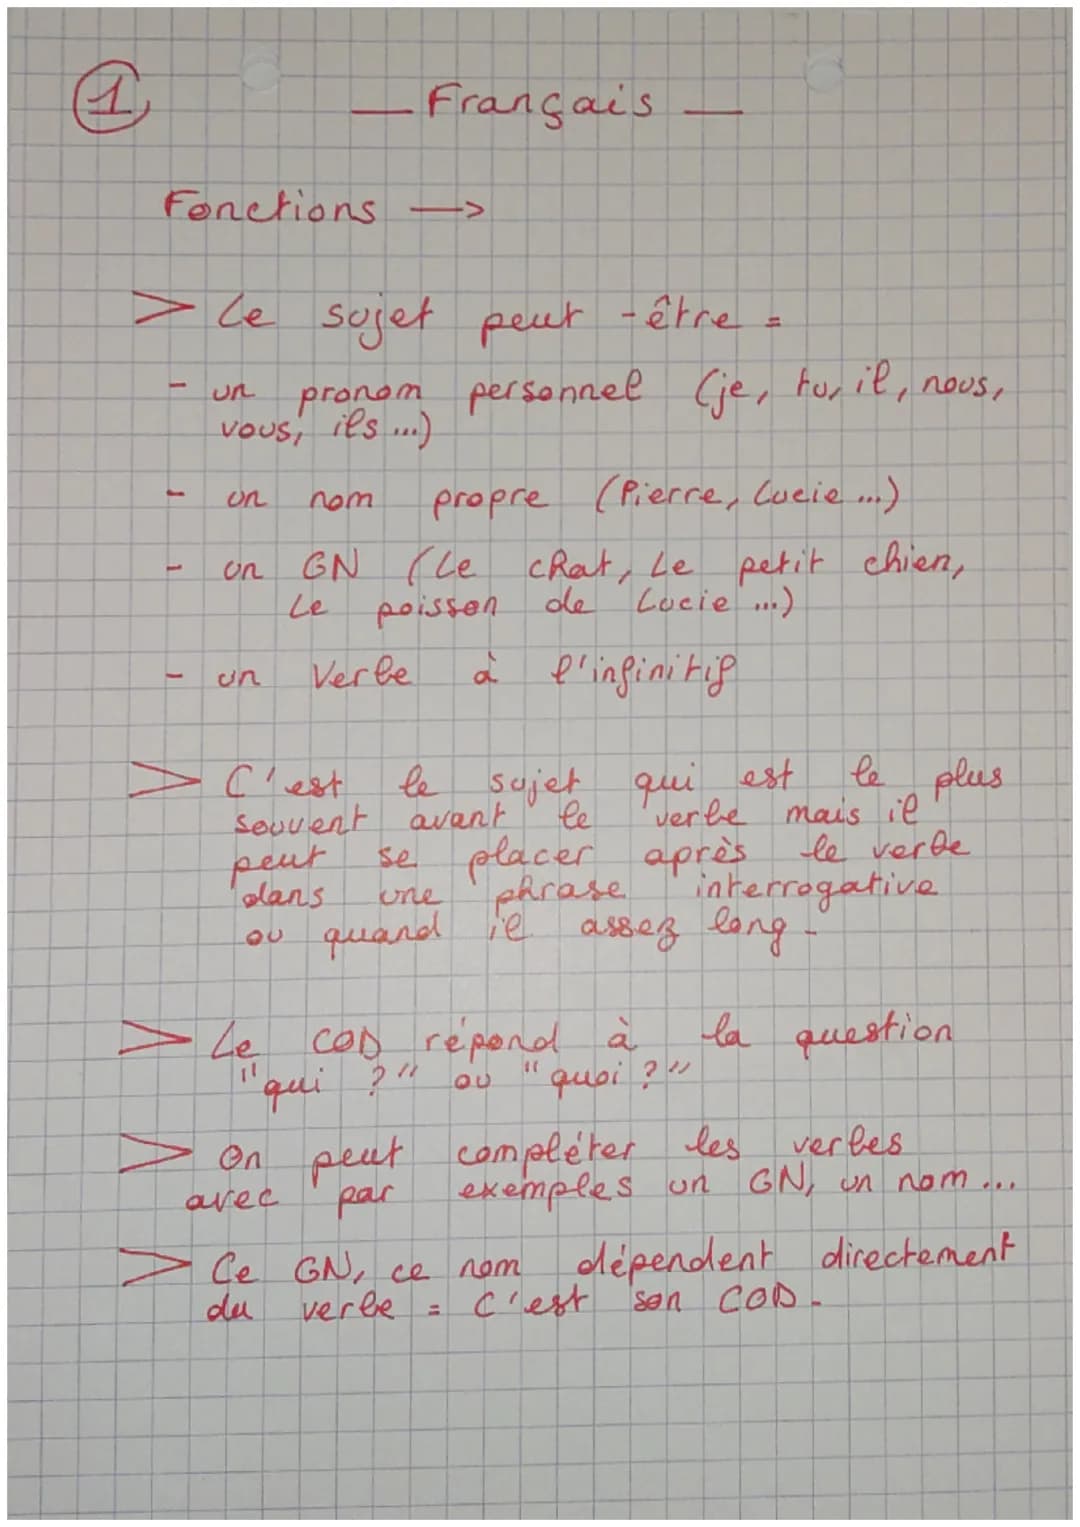 1
— Français —
Fonctions →
> Le sujet peut-être =
- un pronom personnel (je, tu, il, nous,
vous, ils ...)
- un nom propre (Pierre, Lucie ...)
- un GN (Le chat, Le petit chien,
Le poisson de Lucie ...)
- un Verbe à l'infinitif
> C'est le sujet qui est le plus
souvent avant le verbe mais il
peut se placer après le verbe
dans une phrase interrogative
ou quand il assez long.
> Le COD répond à la question
"qui ?" ou "quoi ?"
> On peut compléter les verbes
avec par exemples un GN, un nom ...
> Ce GN, ce nom dépendent directement
du verbe = C'est son COD.